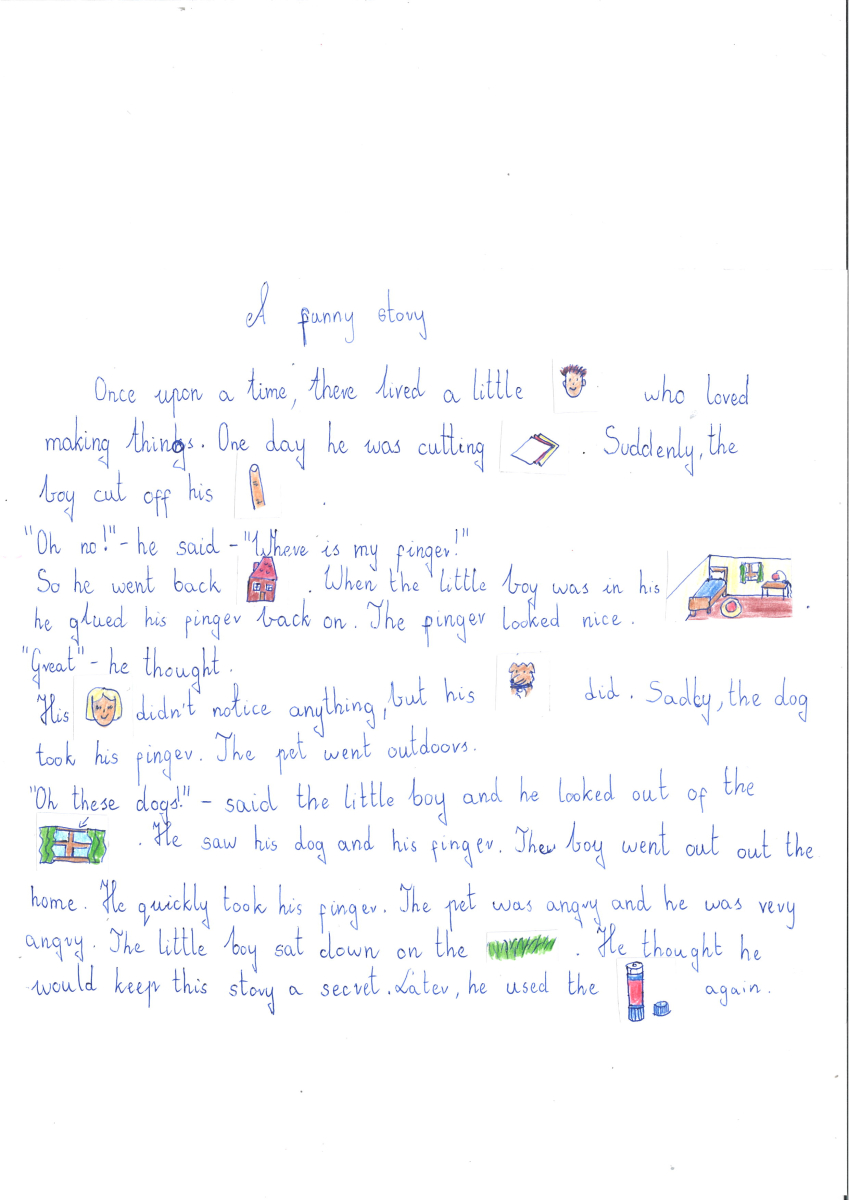 A funny story
Once upon a time, there lived a little who loved
making things. One day he was cutting . Suddenly, the
boy cut off his .
"Oh no!" - he said - "Where is my finger!"
So he went back . When the little boy was in his .
he glued his finger back on. The finger looked nice.
"Great" - he thought.
His didn't notice anything, but his did. Sadly, the dog
took his finger. The pet went outdoors.
"Oh these dogs!" - said the little boy and he looked out of the
. He saw his dog and his finger. The boy went out out the
home. He quickly took his finger. The pet was angry and he was very
angry. The little boy sat down on the . He thought he
would keep this story a secret. Later, he used the again.